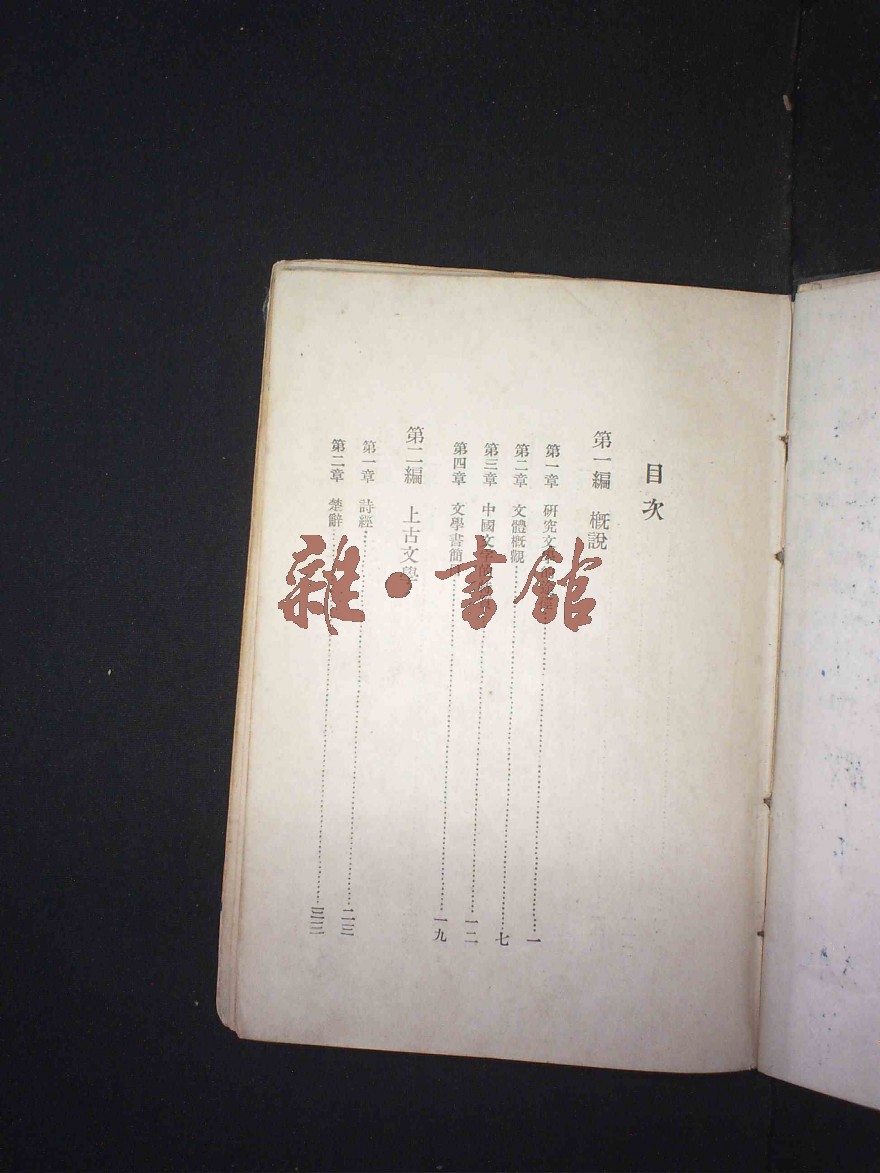 目次
第一編 概說
第一章 研究文 一
第二章 文體概觀 七
第三章 中國文字的 一二
第四章 文學書簡目 一九
第二編 上古文學
第一章 詩經 二三
第二章 楚辭 三三
雜·書館